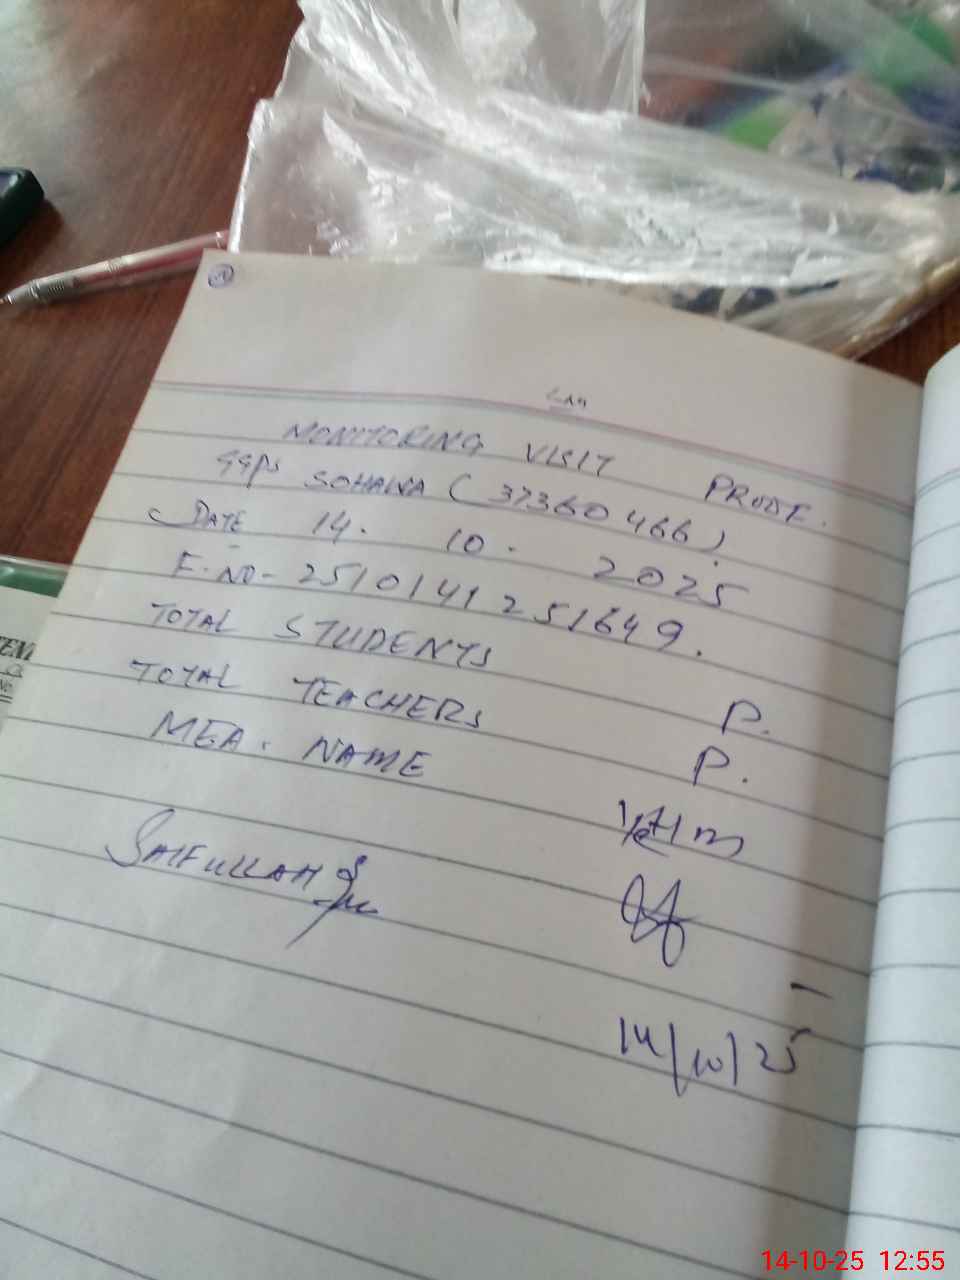 MONITORING VISIT PROOF.
GGPS SOHAWA (37360466)
DATE 14. 10. 2025
E.NO- 2510141251649.
TOTAL STUDENTS P.
TOTAL TEACHERS P.
MEA. NAME
SAIFULLAH
14/10/25
14-10-25 12:55